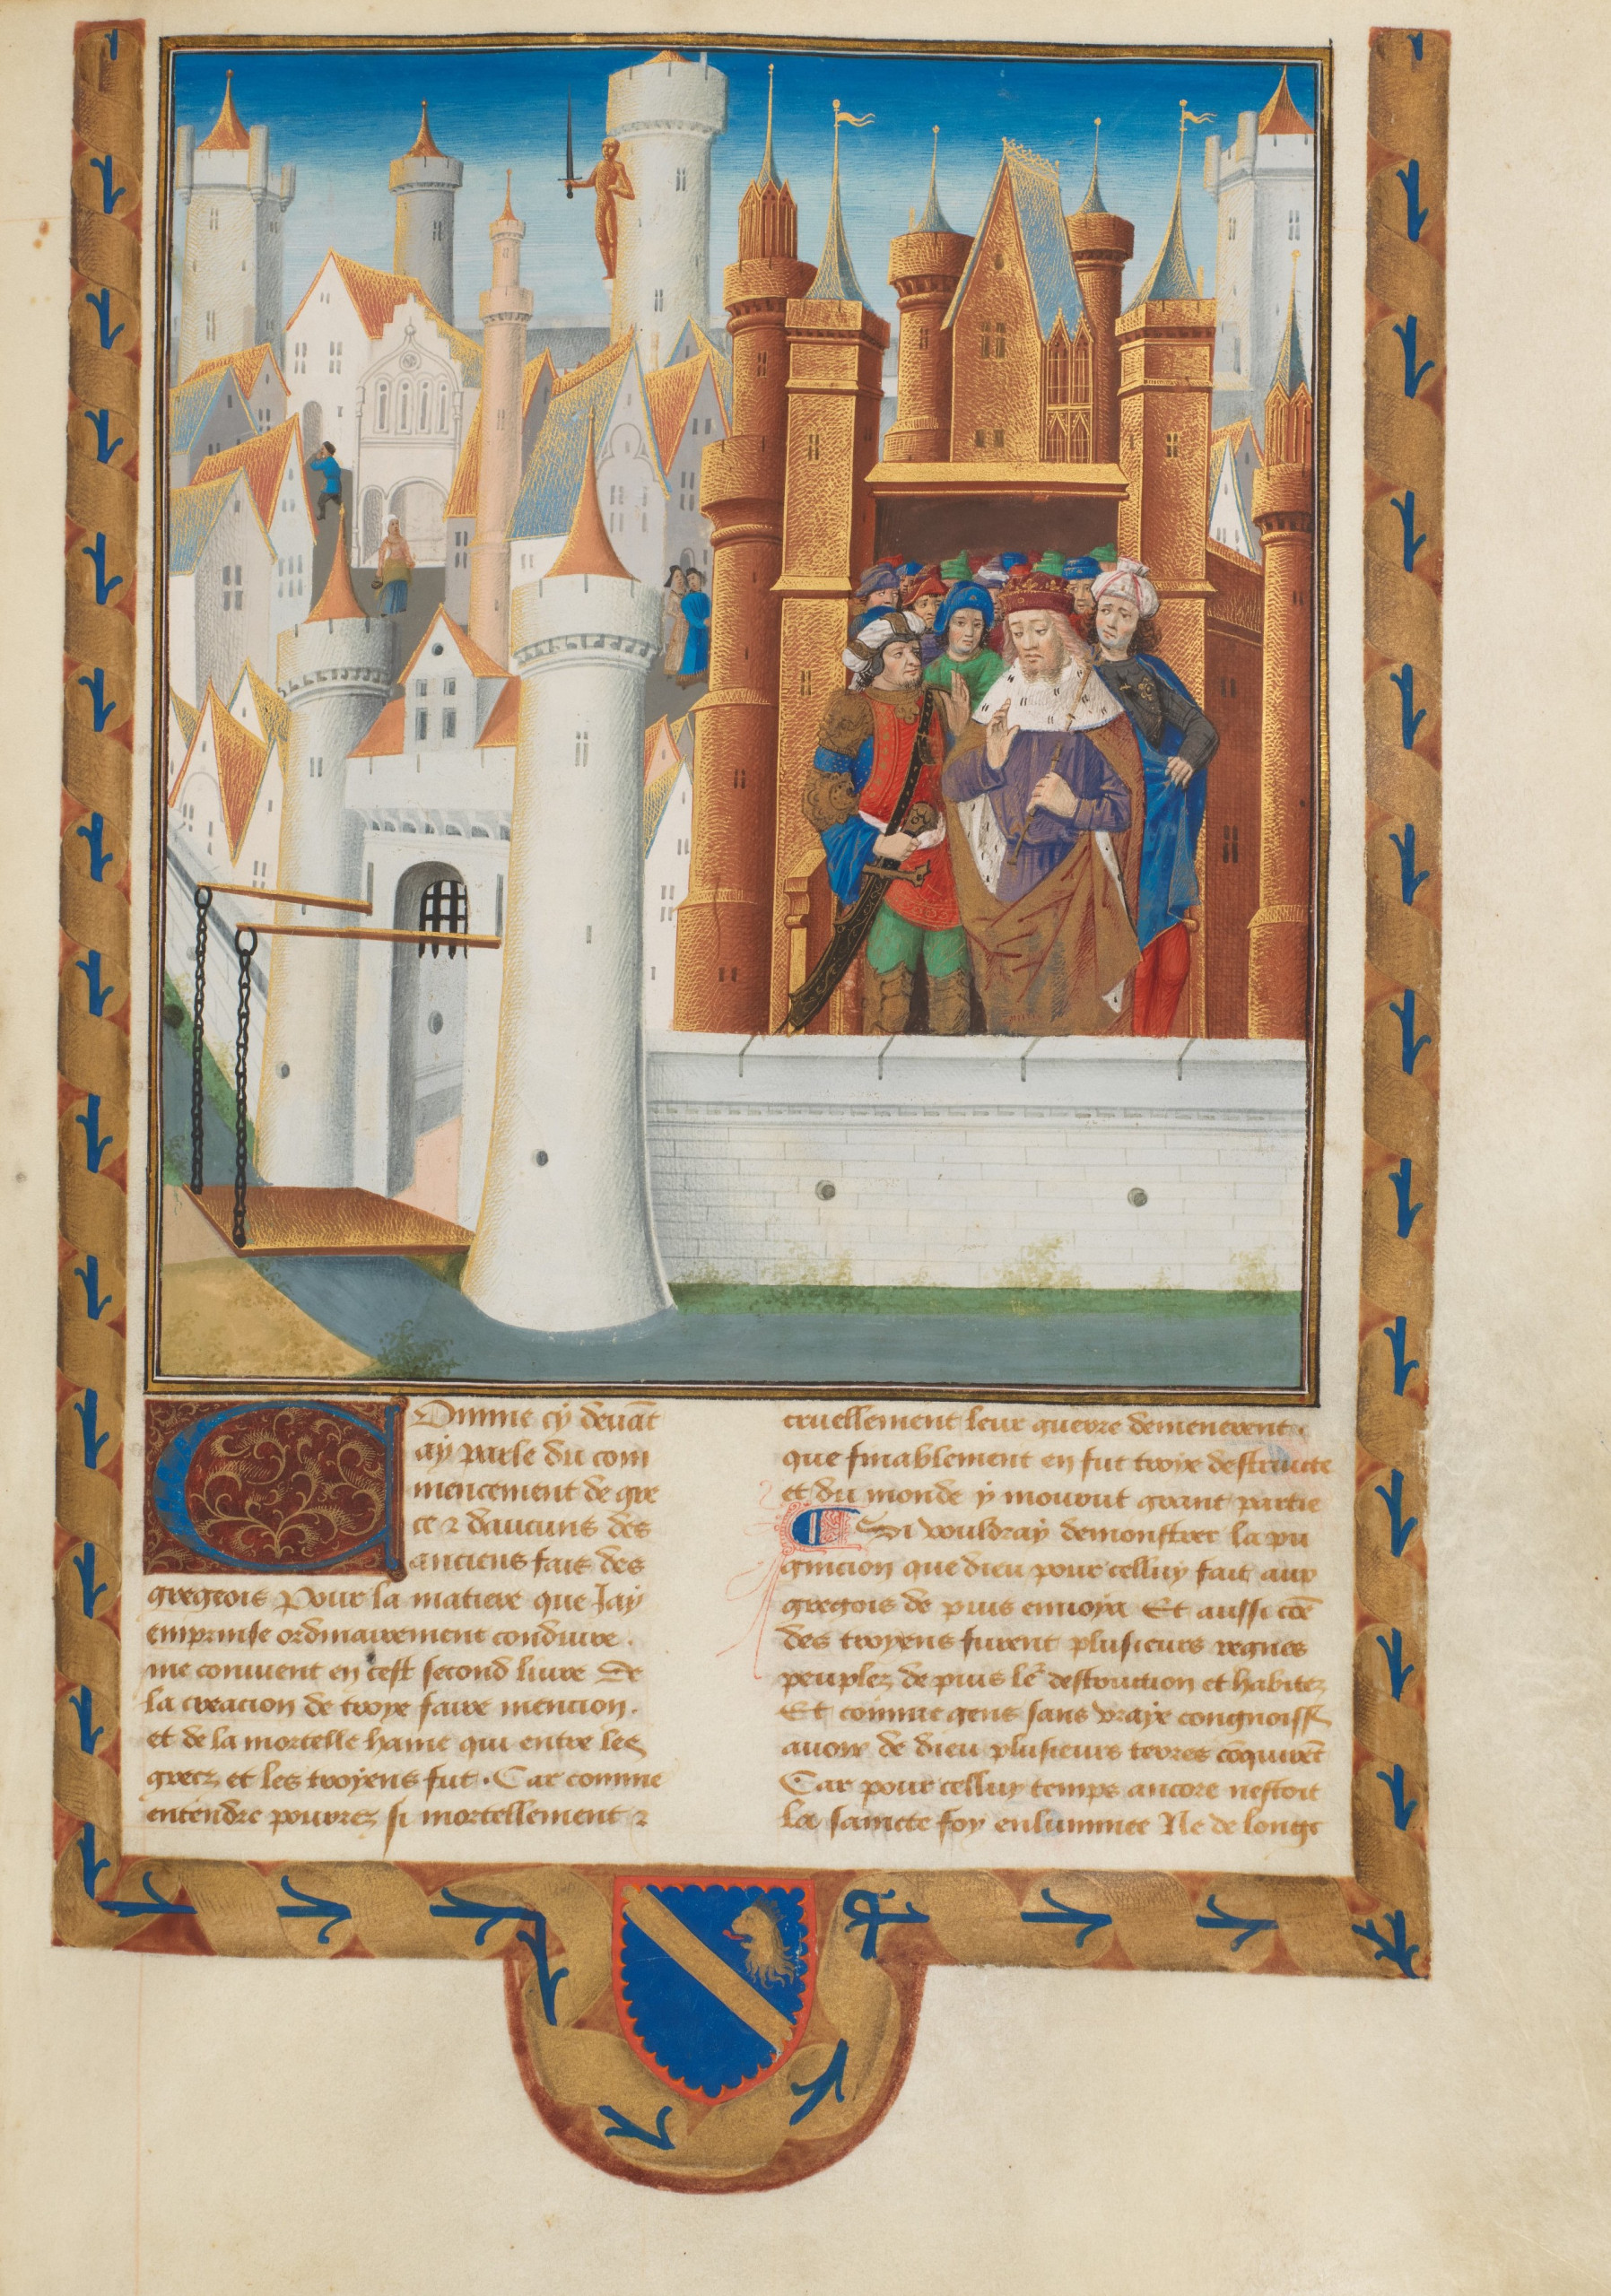 Omme cy deuãt
ay parle du com
mencement de gre
ce ⁊ daucuns des
anciens fais des
gregeois Pour la matiere que Jay
emprinse ordinairement conduire.
me conuient en cest second liure De
la creacion de troye faire mencion.
et de la mortelle haine qui entre les
grecz et les troyens fut. Car comme
entendre pourrez si mortellement ⁊
cruellement leur guerre demenerent
que finablement en fut troye destruicte
et du monde y mourut grant partie
Si vouldray demonstrer la pu
gnicion que dieu pour celluy fait aux
gregois de puis enuoya Et aussi cõe
des troyens furent plusieurs regnes
peuplez de puis le destruction et habitez
Et comme gens sans vraye congnoiss
auoir de dieu plusieurs terres cõquirẽt
Car pour celluy temps ancore nestoit
la saincte foy enluminee Ne de longt